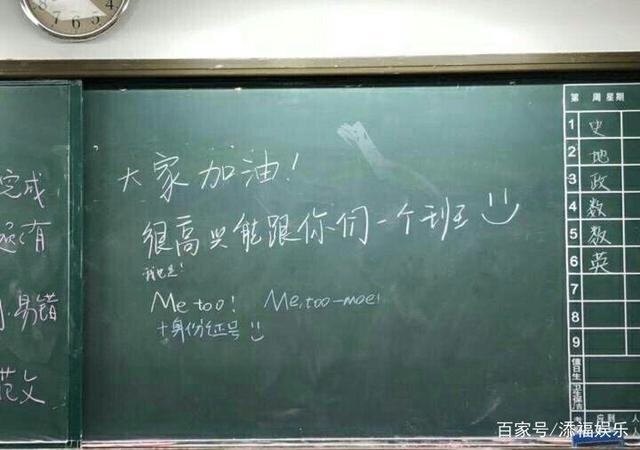 完成
有
易错
范文
大家加油!
很高兴能跟你们一个班
我也是!
Me too! Me, too-moe!
+身份证号
第 周 星期
1 史
2 地
3 政
4 数
5 数
6 英
7
8
9
值日生
应到 人
百家号/添福娱乐